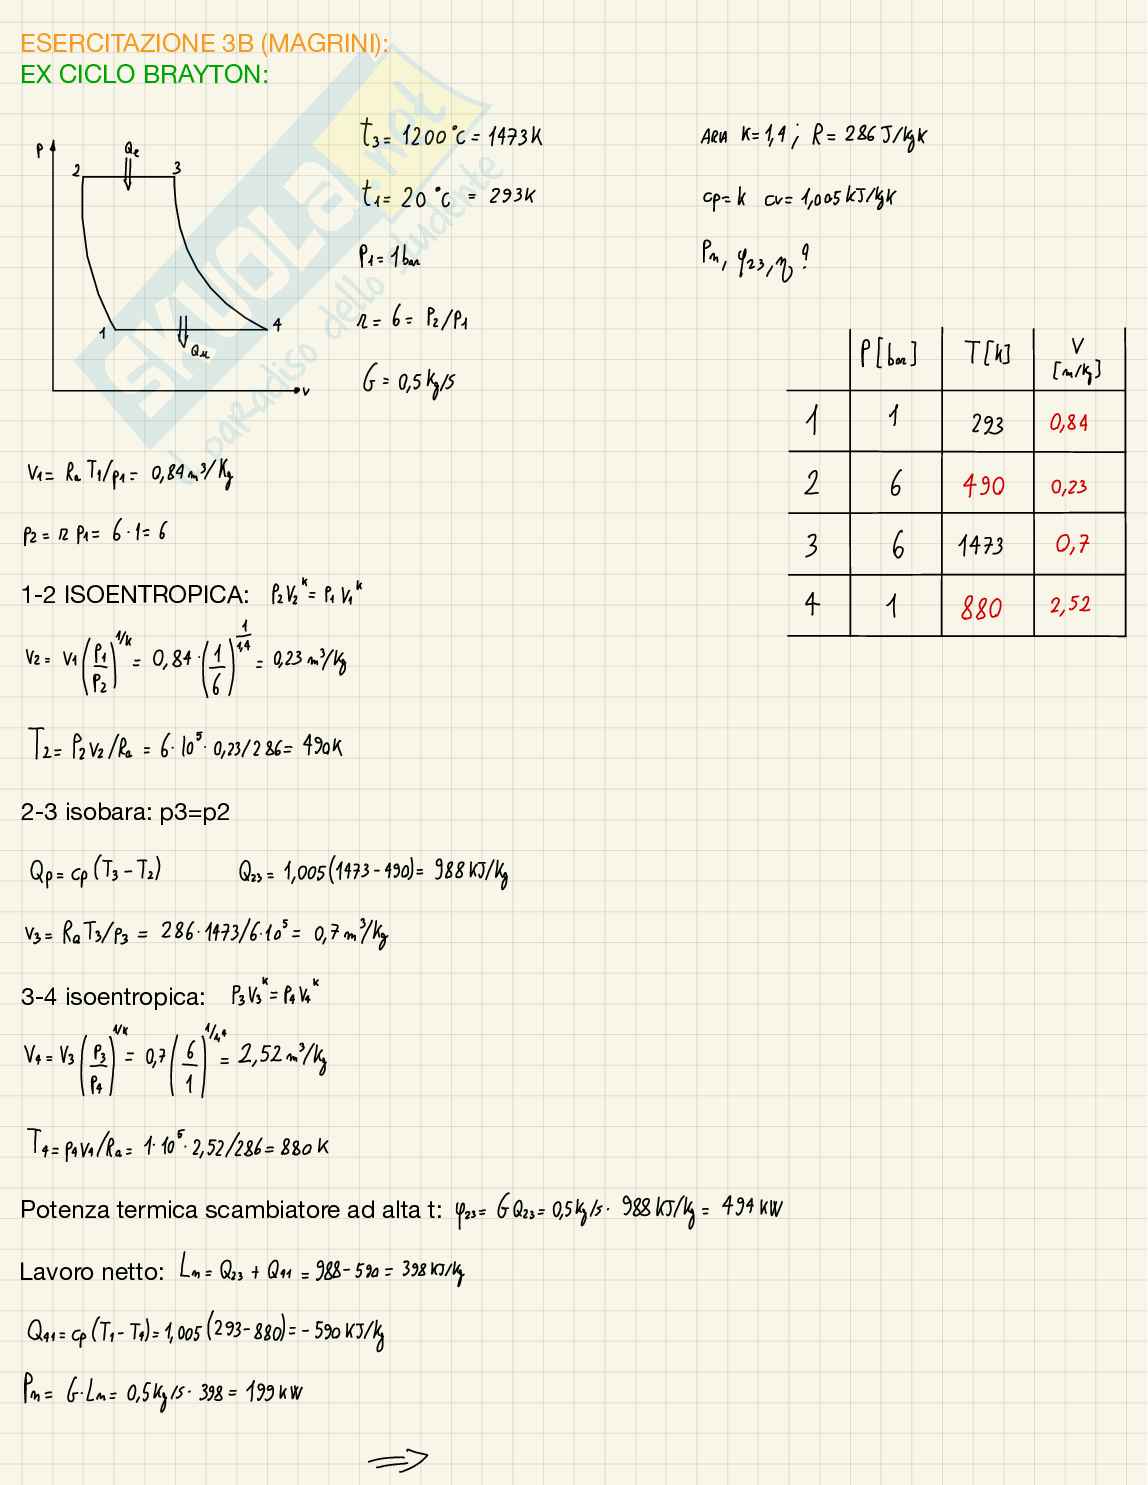 ESERCITAZIONE 3B (MAGRINI):
EX CICLO BRAYTON:
P
Qe
2 3
1 4
Qu
v
t3 = 1200°C = 1473K
t1 = 20°C = 293K
P1 = 1 bar
r = 6 = P2/P1
G = 0,5 Kg/s
ARIA K=1,4 ; R = 286 J/kgK
cp = k cv = 1,005 kJ/kgK
Pn, φ23, η ?
P [bar] T [K] V [m/kg]
1 1 293 0,84
2 6 490 0,23
3 6 1473 0,7
4 1 880 2,52
V1 = Ra T1/p1 = 0,84 m³/Kg
p2 = r p1 = 6·1 = 6
1-2 ISOENTROPICA: P2 V2^k = P1 V1^k
V2 = V1 (P1/P2)^1/k = 0,84 · (1/6)^1/1,4 = 0,23 m³/Kg
T2 = P2 V2/Ra = 6·10⁵·0,23/286 = 490K
2-3 isobara: p3=p2
Qp = cp (T3 - T2) Q23 = 1,005 (1473-490) = 988 KJ/Kg
V3 = Ra T3/p3 = 286·1473/6·10⁵ = 0,7 m³/Kg
3-4 isoentropica: P3 V3^k = P4 V4^k
V4 = V3 (P3/P4)^1/k = 0,7 (6/1)^1/1,4 = 2,52 m³/Kg
T4 = p4 V4/Ra = 1·10⁵·2,52/286 = 880 K
Potenza termica scambiatore ad alta t: φ23 = G Q23 = 0,5 kg/s · 988 KJ/kg = 494 KW
Lavoro netto: Ln = Q23 + Q41 = 988-590 = 398 KJ/Kg
Q41 = cp (T1 - T4) = 1,005 (293-880) = -590 KJ/kg
Pn = G·Ln = 0,5 Kg/s · 398 = 199 KW
⇒
SKUOLA.net
il paradiso dello studente